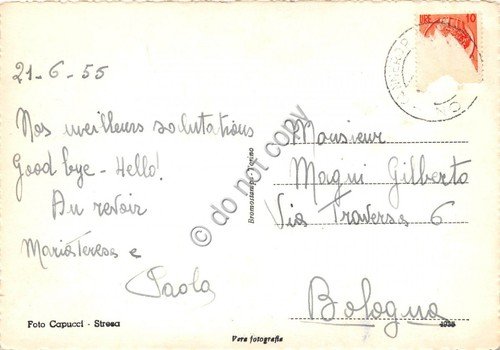 LIRE 10
21-6-55
Nos meilleurs salutations
Good bye - Hello!
Au revoir
Maria Teresa e
Paola
Monsieur
Magni Gilberto
Via Traversa 6
Bologna
Bromostampa - Torino
Foto Capucci - Stresa
Vera fotografia
© do not copy